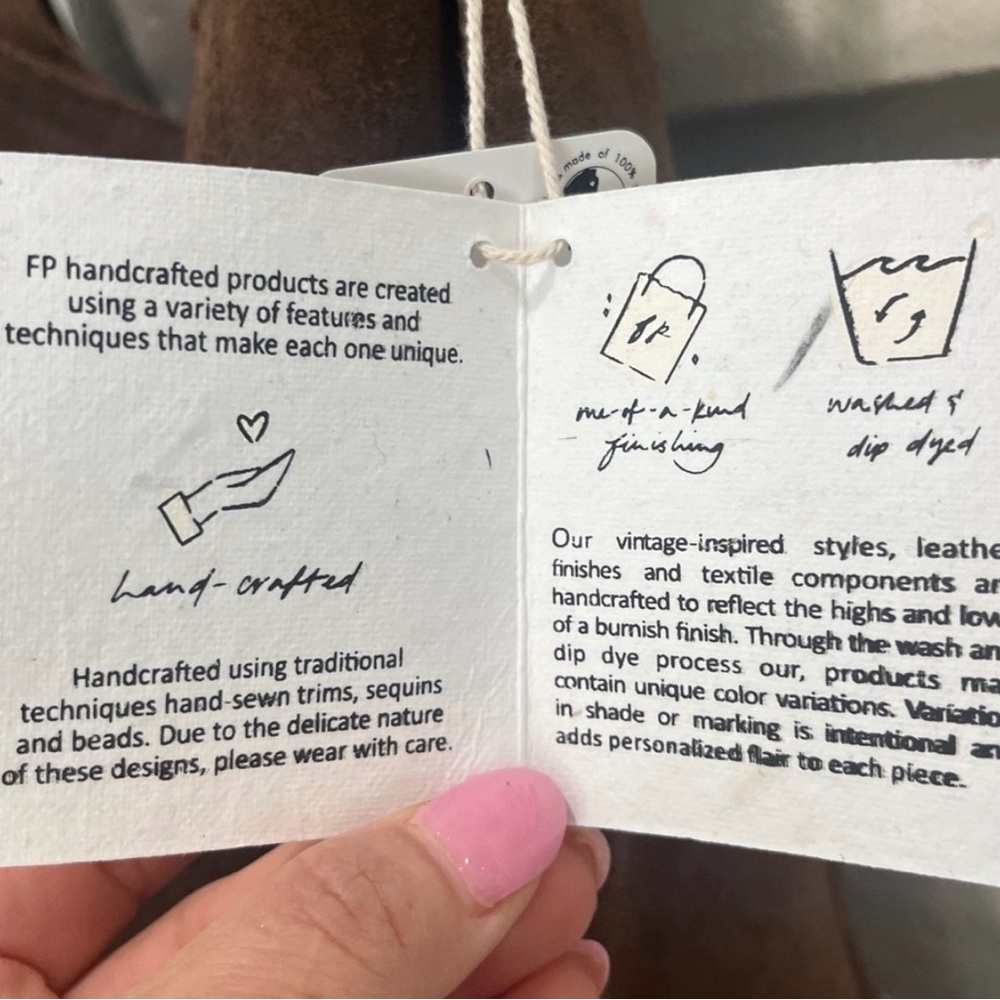 made of 100%
FP handcrafted products are created
using a variety of features and
techniques that make each one unique.
hand-crafted
Handcrafted using traditional
techniques hand-sewn trims, sequins
and beads. Due to the delicate nature
of these designs, please wear with care.
one-of-a-kind
finishing
washed &
dip dyed
Our vintage-inspired styles, leathe
finishes and textile components ar
handcrafted to reflect the highs and low
of a burnish finish. Through the wash an
dip dye process our, products ma
contain unique color variations. Variatio
in shade or marking is intentional an
adds personalized flair to each piece.